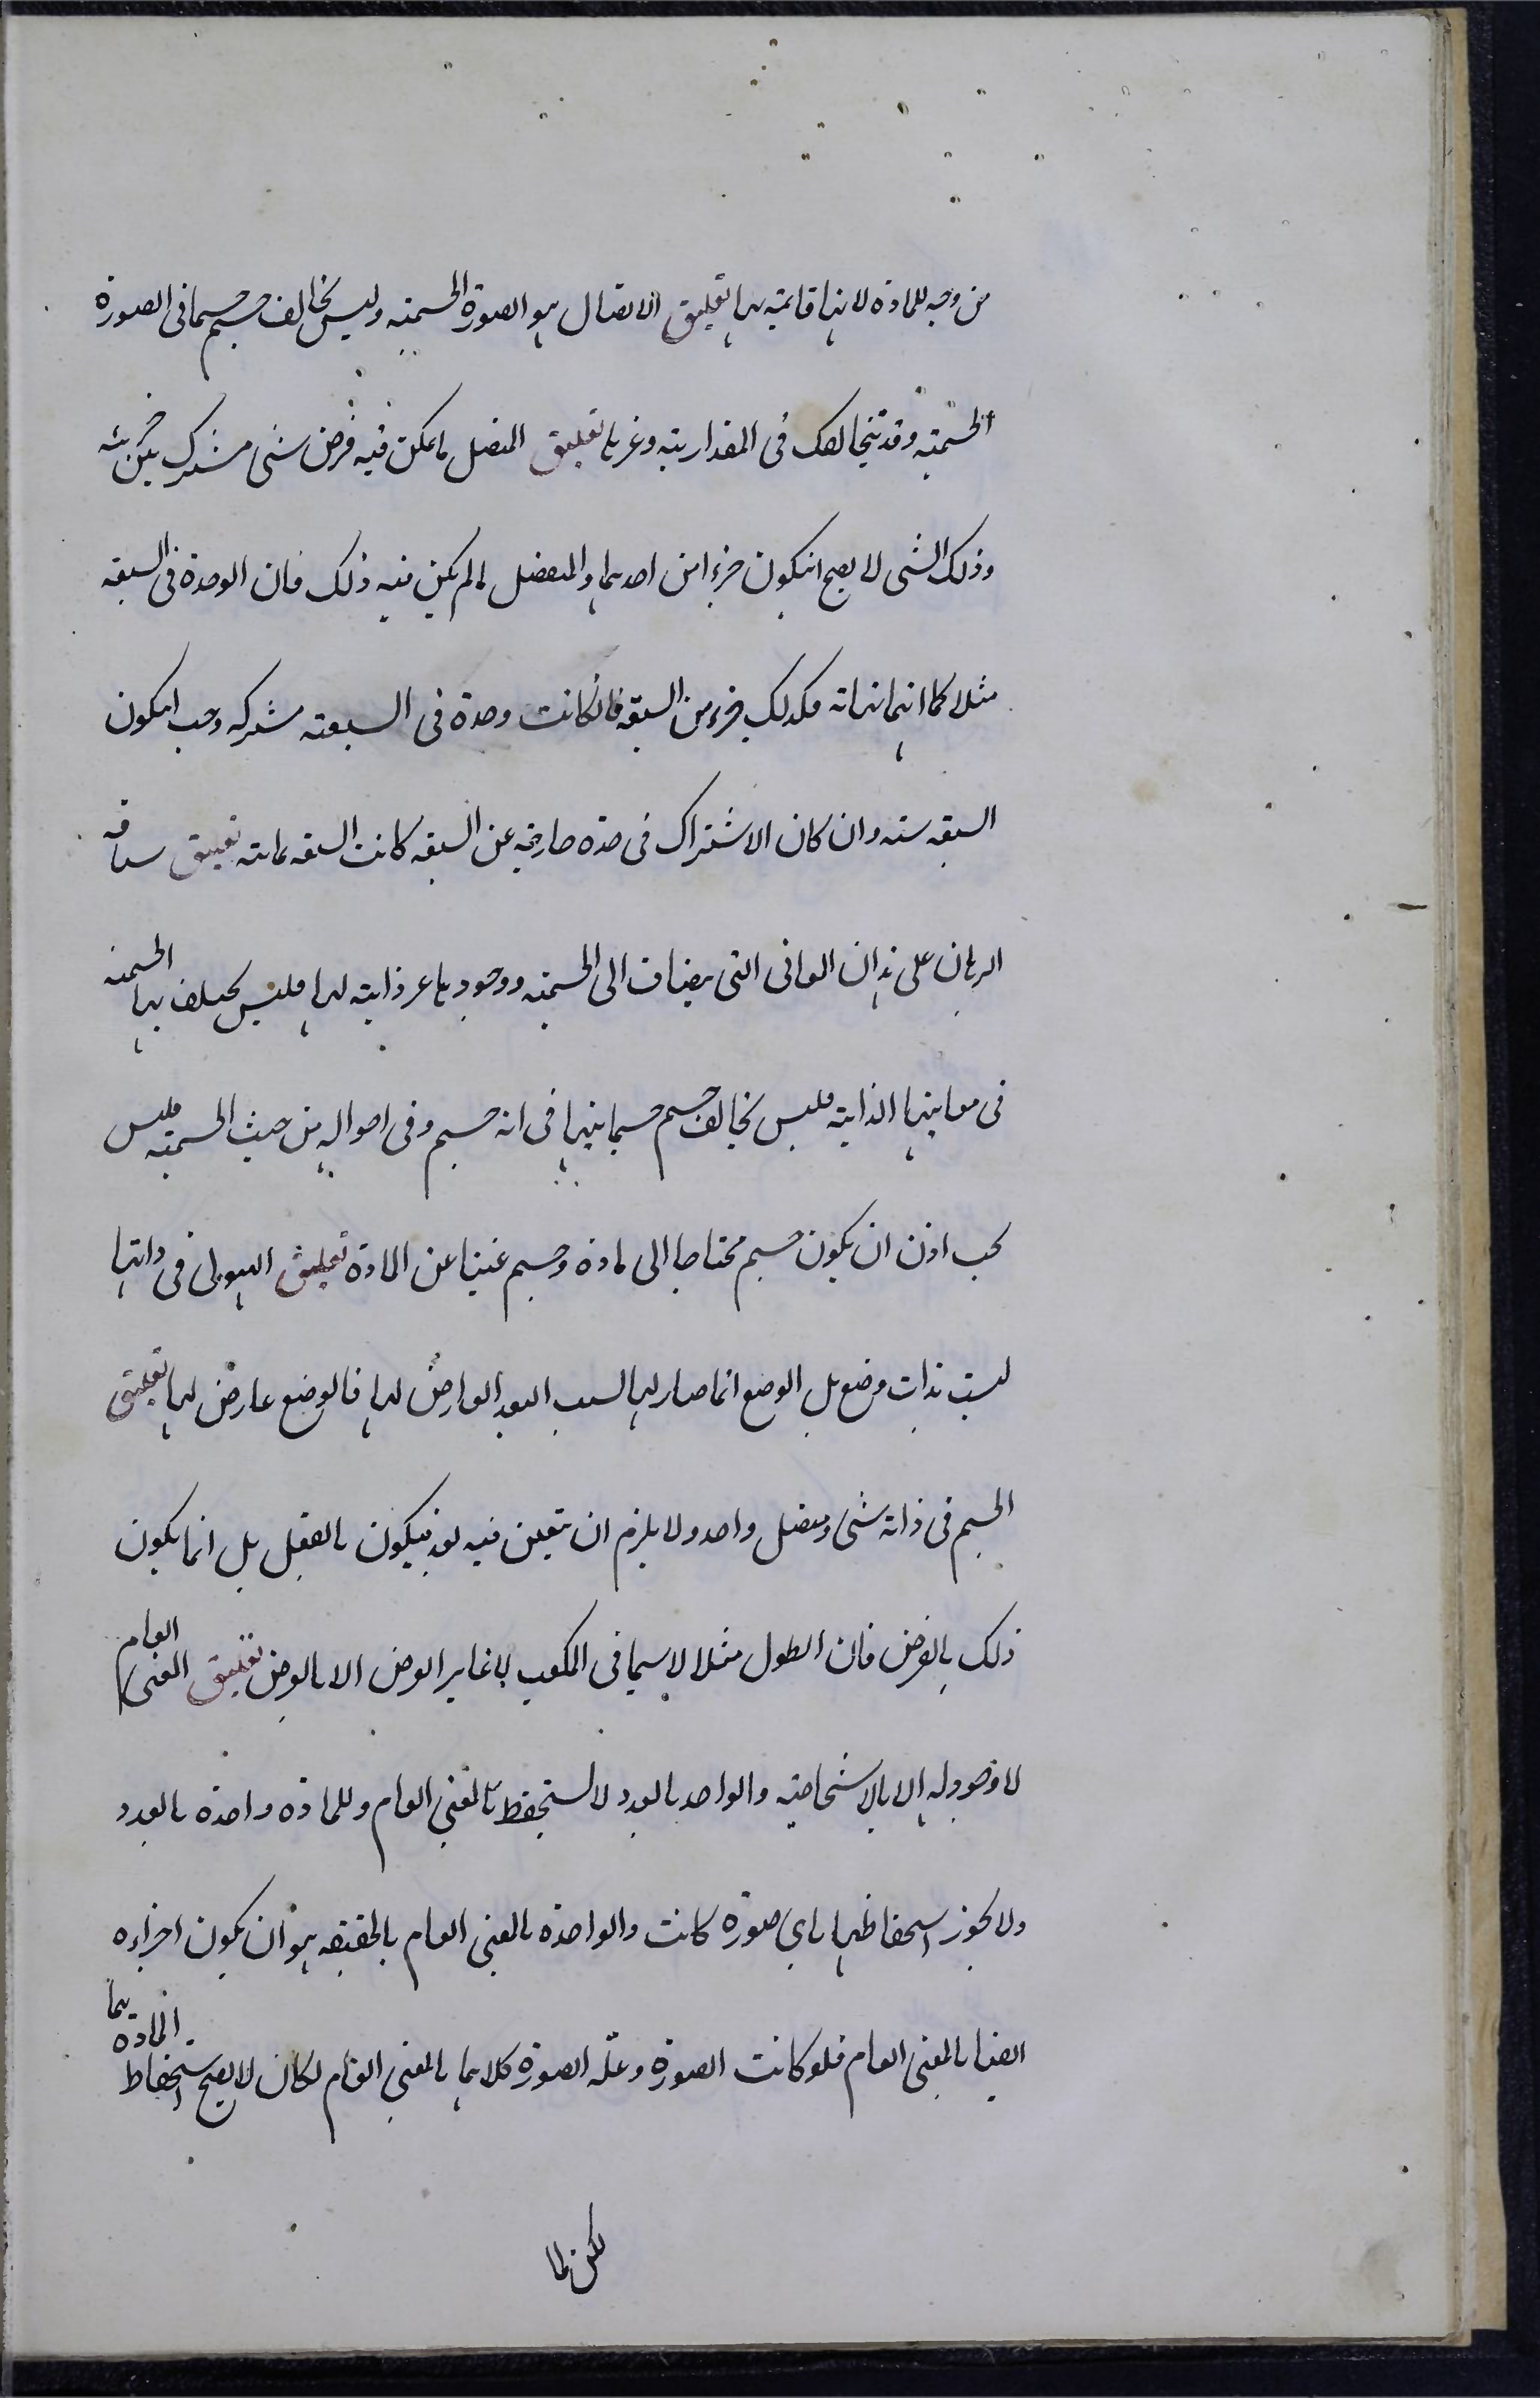 من وجه للمادة لانها قائمة بها تعليق الاتصال هو الصورة الجسمية وليس يخالف جسم جسما فى الصورة
الجسمية وقد يتخالفان فى المقدارية وغيرها تعليق المتصل ما يمكن فيه فرض شىء مشترك بين جزئيه
وذلك الشى لا يصح ان يكون جزءا من احدهما والمنفصل ما لم يكن فيه ذلك فان الوحدة فى السبعة
مثلا كما انها نهاية فكذلك جزء من السبعة فان كانت وحدة فى السبعة مشتركة وجب ان يكون
السبعة ستة وان كان الاشتراك فى وحدة خارجة عن السبعة كانت السبعة ثمانية تعليق سياقة
البرهان على هذا ان المعانى التى يضاف الى الجسمية ووجودها غير ذاتية لها فليس يختلف بها الجسمية
فى معانيها الذاتية فليس يخالف جسم جسما بينها فى انه جسم وفى احواله من حيث الجسمية فليس
يجب اذن ان يكون جسم محتاجا الى مادة وجسم غنيا عن المادة تعليق الهيولى فى ذاتها
ليست بذات وضع بل الوضع انما صار لها بسبب البعد العارض لها فالوضع عارض لها تعليق
الجسم فى ذاته شىء متصل واحد ولا يلزم ان يتعين فيه بعد فيكون بالفعل بل انما يكون
ذلك بالفرض فان الطول مثلا لا سيما فى المكعب لا يغاير العرض الا بالفرض تعليق المعنى العام
لا وجود له الا بالاشخاصية والواحد بالعدد لا يستحفظ بالمعنى العام وللمادة واحدة بالعدد
ولا يجوز استحفاظها باى صورة كانت والواحدة بالمعنى العام بالحقيقة هو ان يكون اجزاءه
ايضا بالمعنى العام فلو كانت الصورة وعلة الصورة كلاهما بالمعنى العام لكان لا يصح استحفاظ المادة بهما
لكن لما